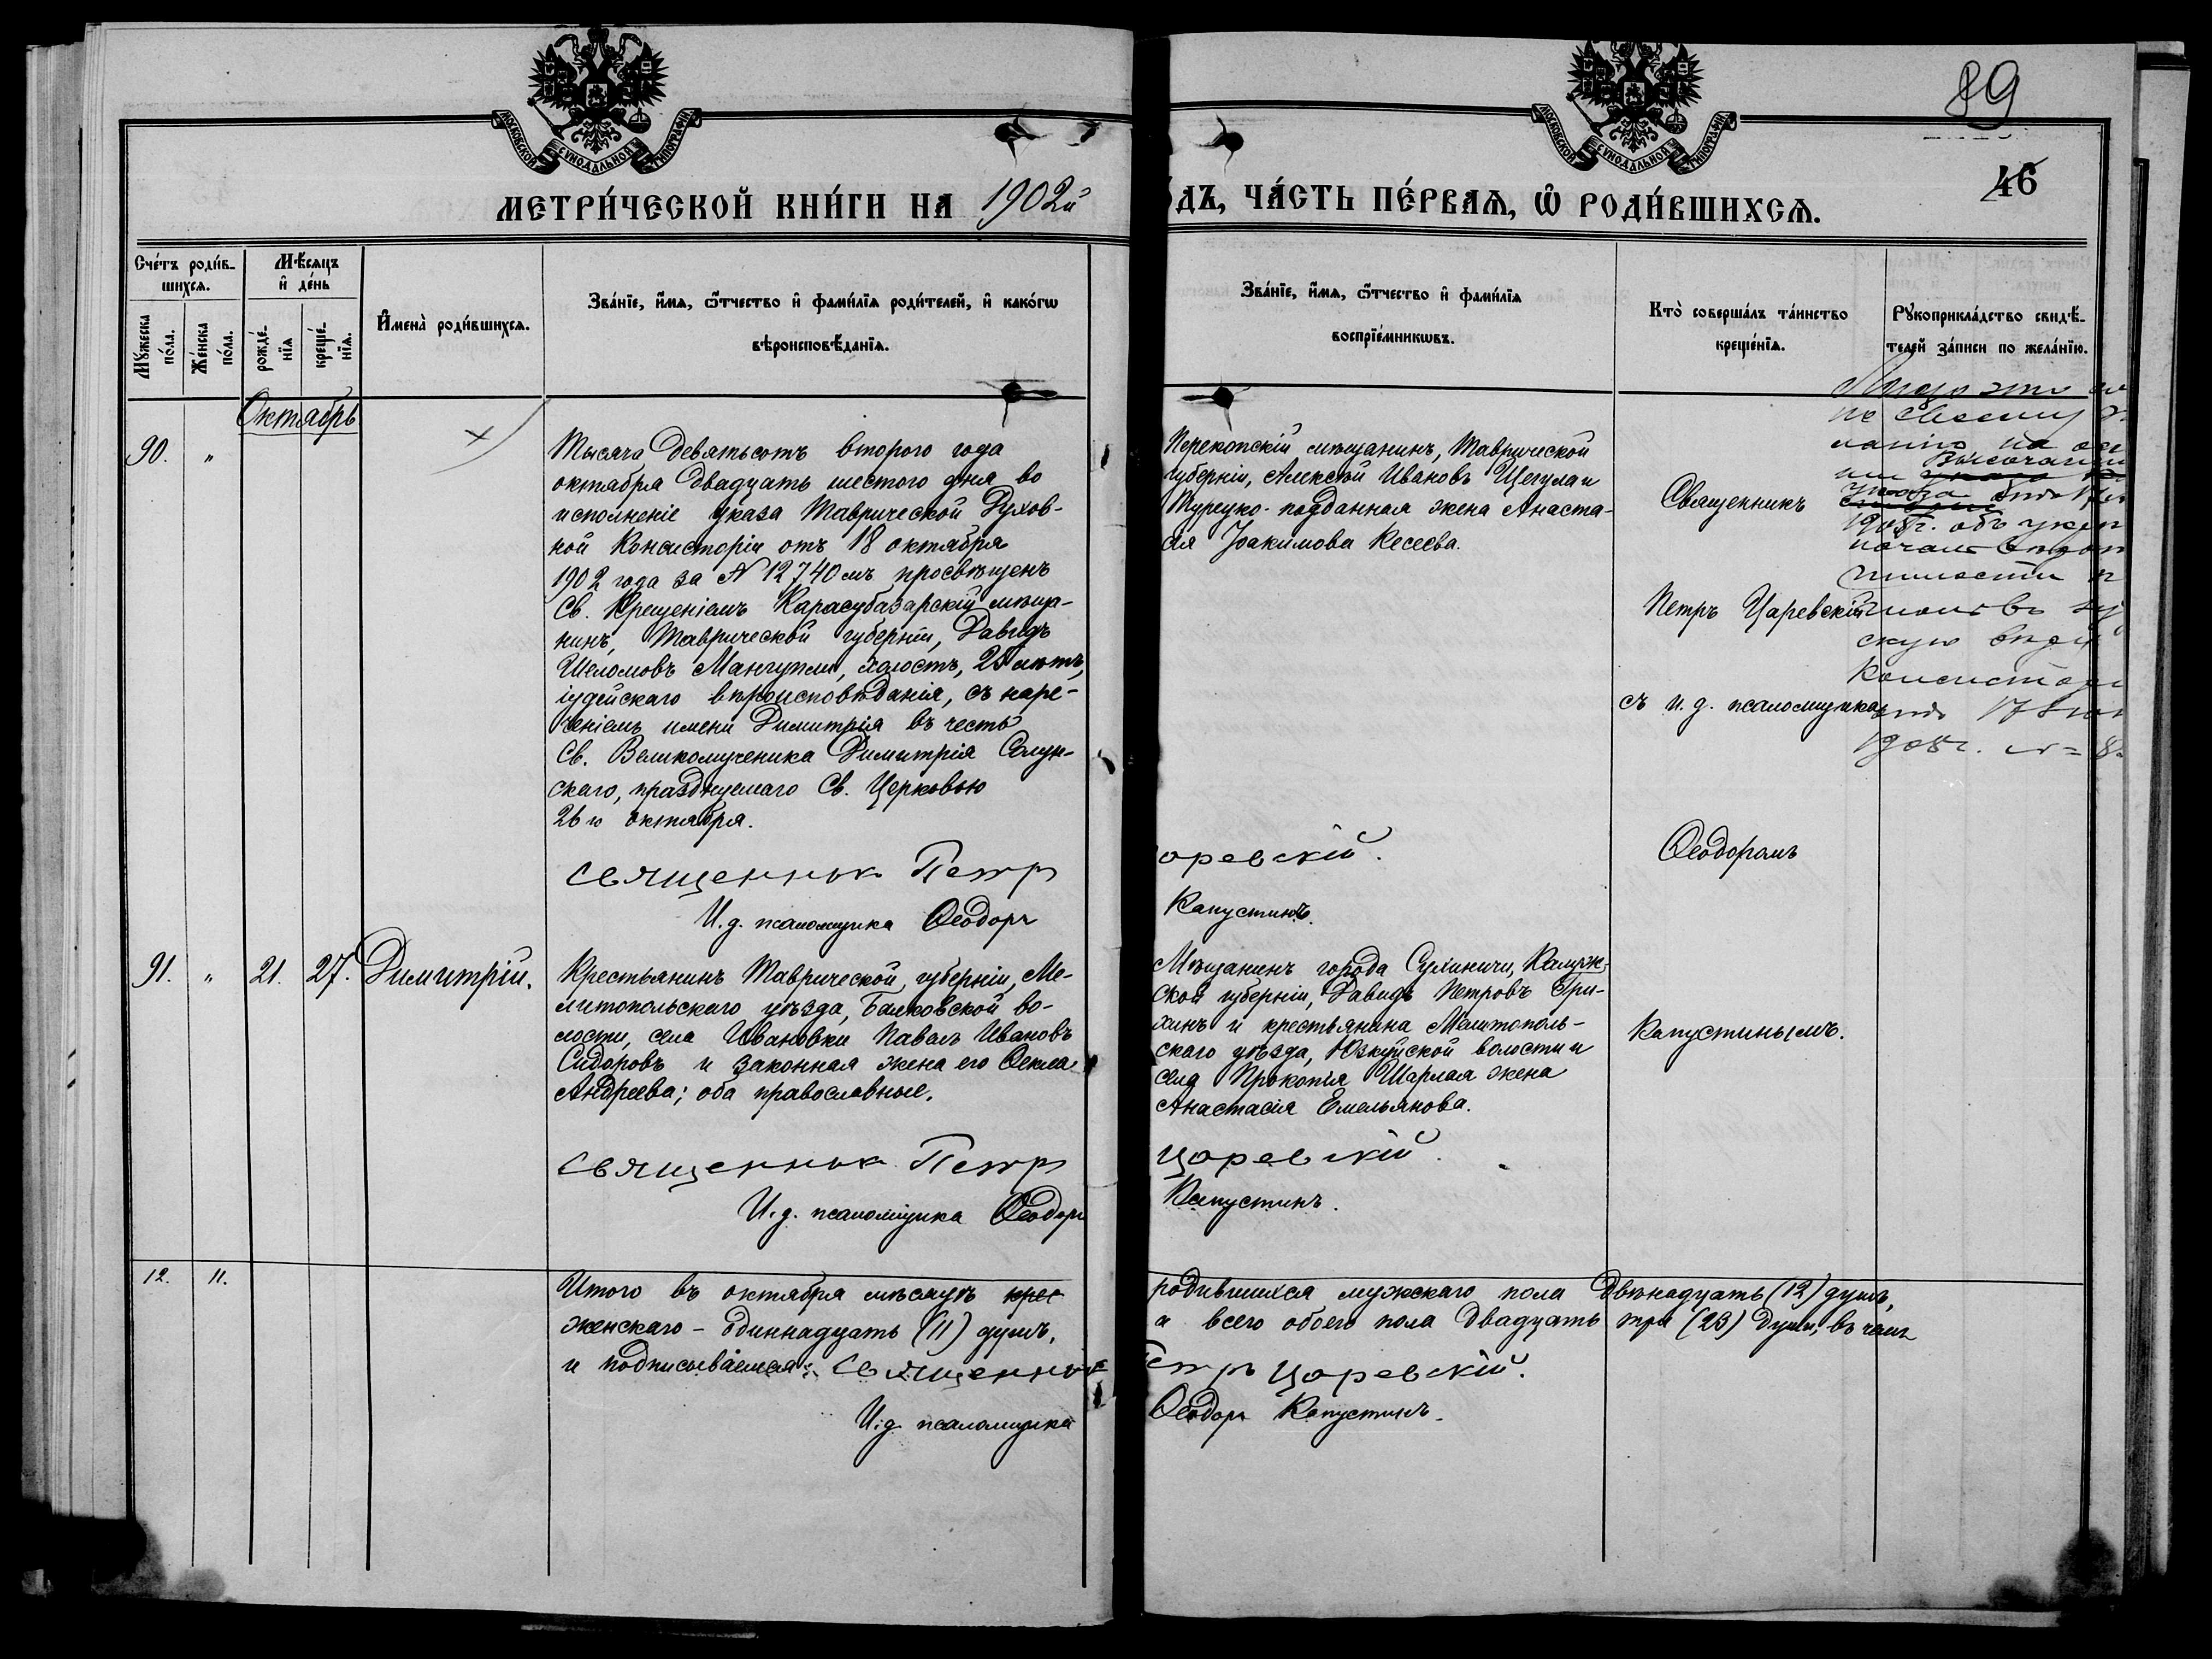 89
46
МОСКОВСКОЙ СѴНОДАЛЬНОЙ ТИПОГРАФІИ
МОСКОВСКОЙ СѴНОДАЛЬНОЙ ТИПОГРАФІИ
МЕТРИ́ЧЕСКОЙ КНИ́ГИ НА 1902й
ДЪ, ЧА́СТЬ ПЕ́РВАѦ, Ѡ РОДИ́ВШИХСѦ.
Сче́тъ роди́в-
шихсѧ.
Мꙋжеска по́ла.
Же́нска по́ла.
Мѣ́сѧцъ
и҆ де́нь
рожде́-
нїѧ
креще́-
нїѧ.
И҆мена̀ роди́вшихсѧ.
Зва́нїе, и҆́мѧ, ѻ҆́тчество и҆ фами́лїѧ роди́телей, и҆ како́гѡ
вѣроисповѣ́данїѧ.
Зва́нїе, и҆́мѧ, ѻ҆́тчество и҆ фами́лїѧ
воспрїе́мникѡвъ.
Кто̀ соверша́лъ та́инство
креще́нїѧ.
Рꙋкоприкла́дство свидѣ́-
телей за́писи по жела́нїю.
Октябрь
90. „
Тысяча девятьсотъ второго года
октября двадцать шестого дня во
исполненіе указа Таврической Духов-
ной Консисторіи отъ 18 октября
1902 года за № 12740мъ просвѣщенъ
Св. Крещеніемъ Карасубазарскій мѣща-
нинъ, Таврической губерніи, Давидъ
Шеломовъ Мангупли, холостъ, 28 лѣтъ,
іудейскаго вѣроисповѣданія, съ наре-
ченіемъ имени Димитрія въ честь
Св. Великомученика Димитрія Солун-
скаго, празднуемаго Св. Церковью
26го октября.
Священникъ Петръ
И. д. псаломщика Ѳеодоръ
Перекопскій мѣщанинъ, Таврической
губерніи, Алексѣй Ивановъ Щегула и
Турецко-подданная жена Анаста-
сія Іоакимова Кесеева.
аревскій.
Капустинъ.
Священникъ
Петръ Царевскій
съ и. д. псаломщика
Ѳеодоромъ
Капустинымъ.
Лицо это
по своему
на
Высочайш
указа
1905г. объ укр
началъ
скую
Консистор
17
1908г.
91. „ 21. 27. Димитрій.
Крестьянинъ Таврической губерніи, Ме-
литопольскаго уѣзда, Балковской во-
лости, села Ивановки Павелъ Ивановъ
Сидоровъ и законная жена его Ѳекла
Андреева; оба православные.
Священникъ Петръ
И. д. псаломщика Ѳеодоръ
Мѣщанинъ города Сухиничи, Калуж-
ской губерніи, Давидъ Петровъ Гри-
хинъ и крестьянина Мелитополь-
скаго уѣзда, Юзкуйской волости и
села Прокопія Шарлая жена
Анастасія Емельянова.
Царевскій.
Капустинъ.
12. 11.
Итого въ октябрѣ мѣсяцѣ
родившихся мужскаго пола двѣнадцать (12) душъ,
женскаго – одиннадцать (11) душъ,
а всего обоего пола двадцать три (23) души, въ чемъ
и подписываемся: Священникъ
Петръ Царевскій.
И. д. псаломщика
Ѳеодоръ Капустинъ.